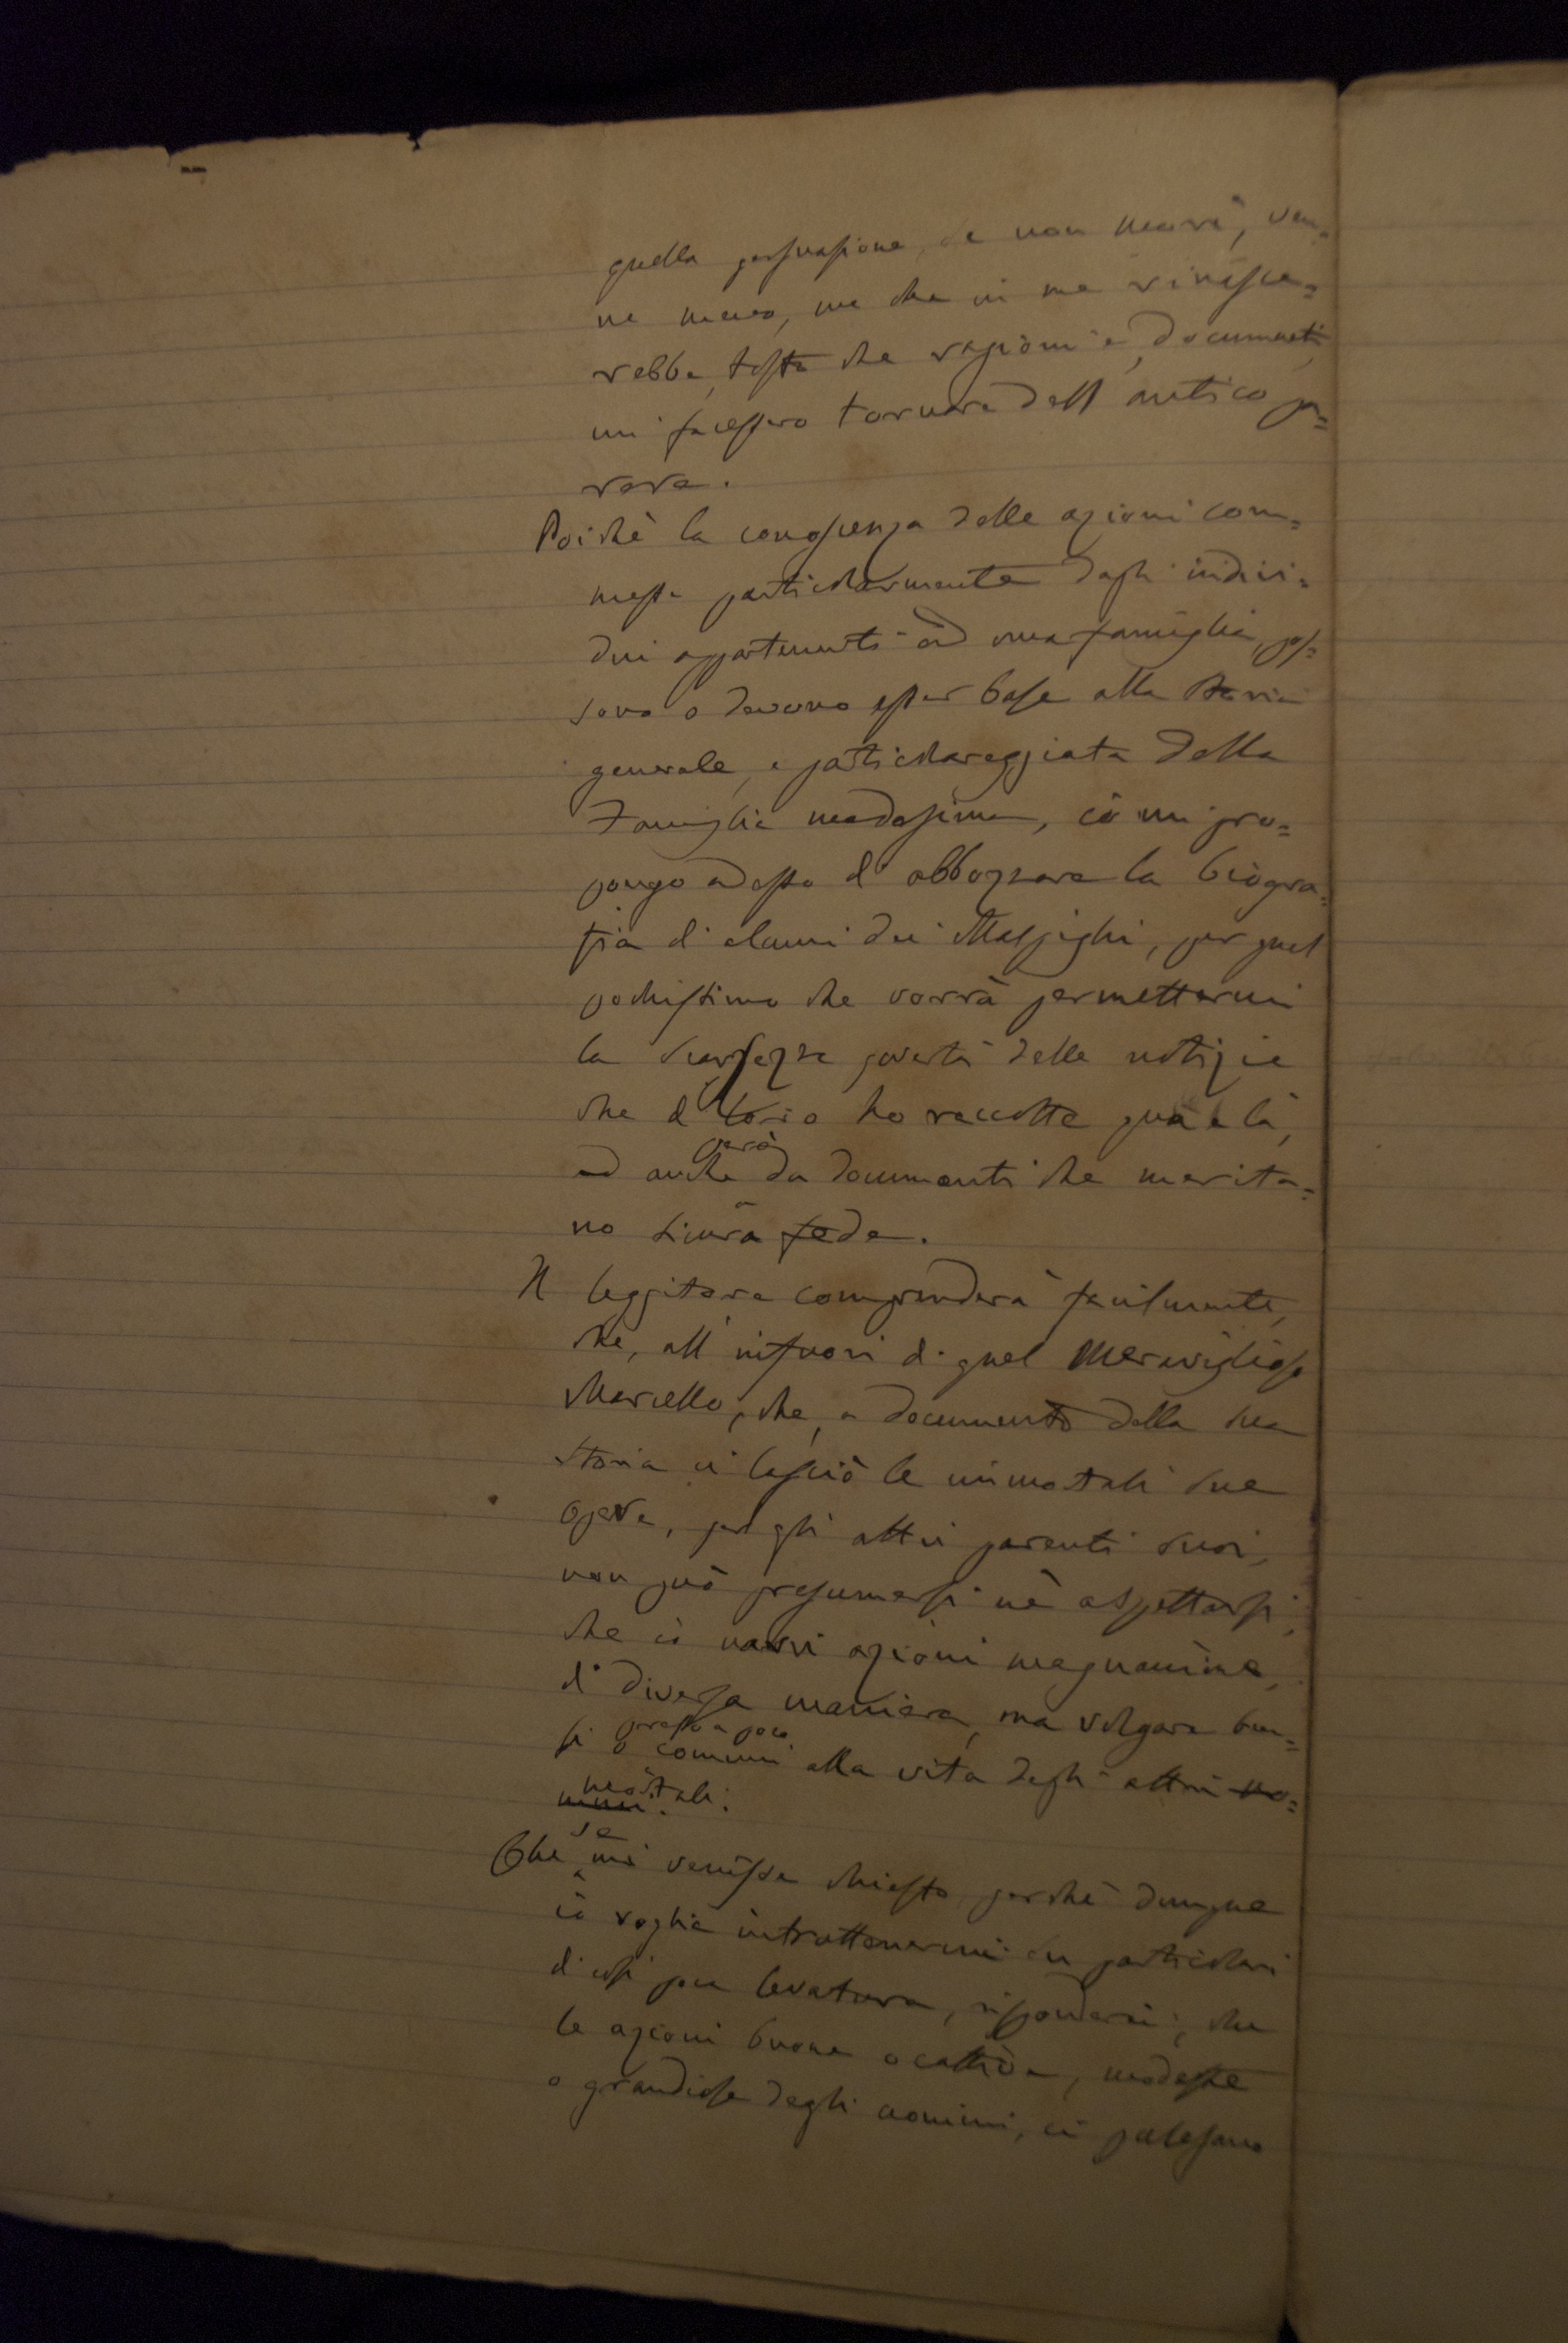 quella persuasione, se non morì, ven-
ne meno, ma che in me rinasce=
rebbe, tosto che ragioni e documenti
mi facessero tornare dell'antico pa=
rere.
Poichè la conoscenza delle azioni com=
messe particolarmente dagli indivi=
dui appartenenti ad una famiglia, pos=
sono o devono esser base alla Storia
generale, e particolareggiata della
Famiglia medesima, io mi pro=
pongo adesso di abbozzare la biogra=
fia di alcuni dei Malpighi, per quel
pochissimo che vorrà permettermi
la povertà delle notizie
che di loro ho raccolte qua e là,
ed anche però da documenti che merita=
no sicura fede.
Il leggitore comprenderà facilmente,
che, all'infuori di quel meraviglioso
Marcello, che, a documento della sua
storia ci lasciò le immortali sue
opere, per gli altri parenti suoi,
non può presumersi nè aspettarsi,
che io narri azioni magnanime,
di diversa maniera, ma volgare ben=
sì o presso a poco comuni alla vita degli altri uo=
mini. mortali.
Che se mi venisse chiesto, perchè dunque
io voglia intrattenermi su particolari
di così poca levatura, risponderei, che
le azioni buone o cattive, modeste
o grandiose degli uomini, ci palesano